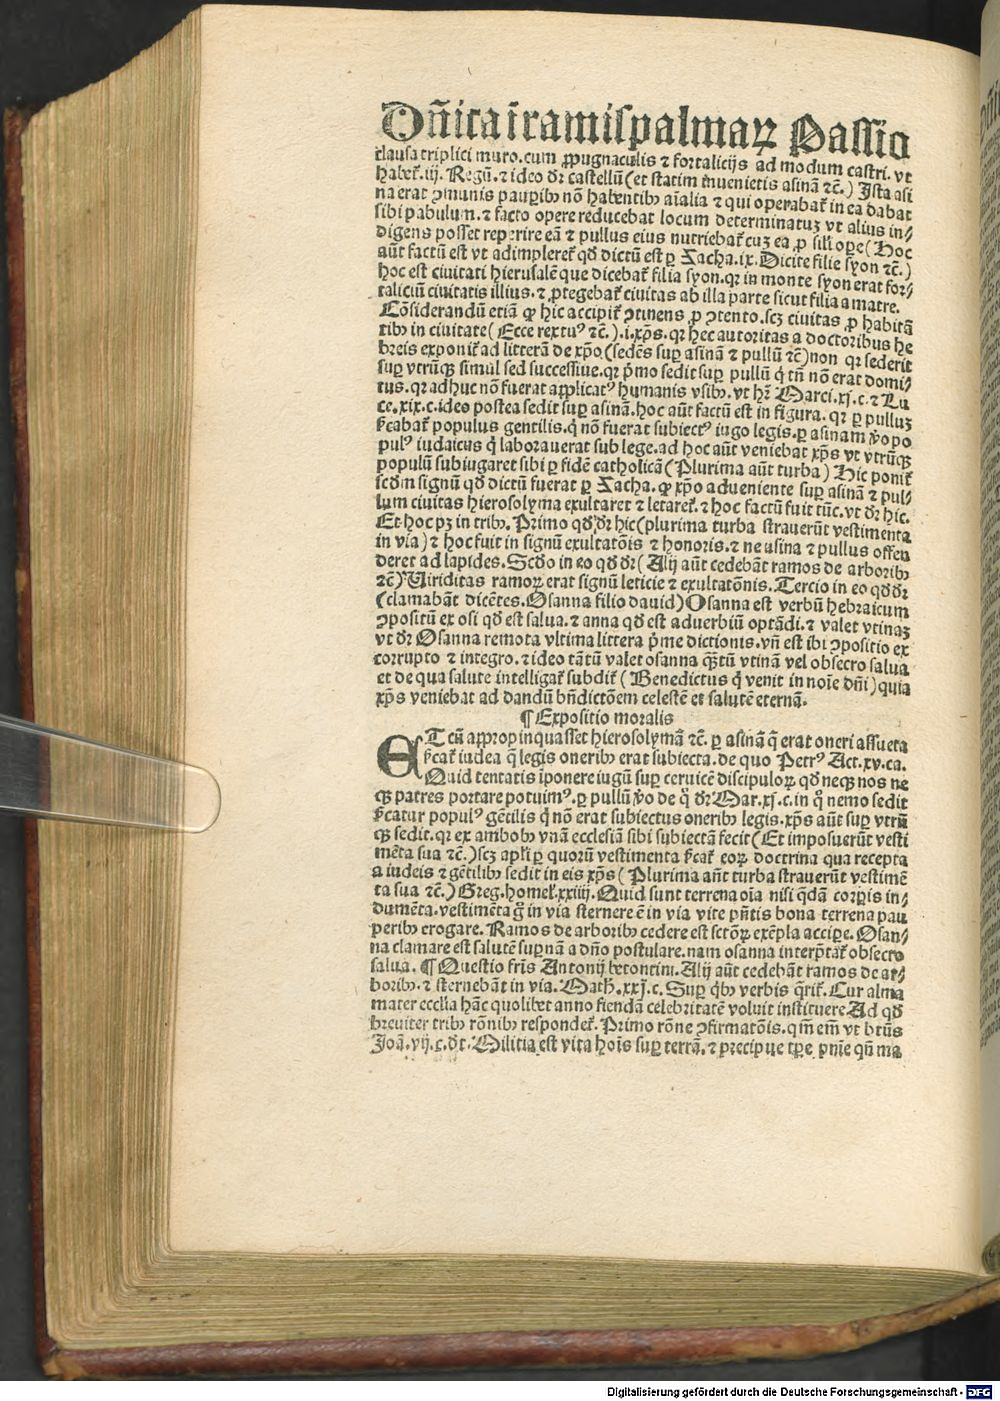 Dñica ĩ ramiſ palmaꝝ Paſſio
clauſa triplici muro.cum ꝓpugnaculis ⁊ fortalicijs ad modum caſtri. vt
habet᷑.iij. Regũ.⁊ ideo dr̃ caſtellũ(et ſtatim inuenietis aſinã ⁊c̃.) Iſta aſi
na erat ꝯmunis pauꝑibꝰ nõ habentibꝰ aĩalia ⁊ qui operabat᷑ in ea dabat
ſibi pabulum.⁊ facto opere reducebat locum determinatuꝫ vt alius in⸗
digens poſſet reperire eã ⁊ pullus eius nutriebat᷑ cuꝫ ea ꝑ ſili ope(Hoc
aũt factũ eſt vt adimpleret᷑ qď dictũ eſt ꝑ Zacha.ix.Dicite filie ſyon ⁊c̃.)
hoc eſt ciuitati hieruſalẽ que dicebat᷑ filia ſyon.qꝛ in monte ſyon erat for⸗
taliciũ ciuitatis illius.⁊ ꝓtegebat᷑ ciuitas ab illa parte ſicut filia a matre.
Cõſiderandũ etiã ꝙ hic accipit᷑ ꝯtinens ꝓ ꝯtento.ſcꝫ ciuitas ꝓ habitã
tibꝰ in ciuitate(Ecce rex tuꝰ ⁊c̃.).i.xp̃s.qꝛ hec autoritas a doctoribus he
breis exponit᷑ ad litterã de xp̃o(ſedẽs ſuꝑ aſinã ⁊ pullũ ⁊c̃)non qꝛ ſederit
ſuꝑ vtrũqꝫ ſimul ſed ſucceſſiue.qꝛ p̃mo ſedit ſuꝑ pullũ q̇ tñ nõ erat domi⸗
tus.qꝛ adhuc nõ fuerat applicatꝰ humanis vſibꝰ.vt hr̃ Marci.xj.c.⁊ Lu
ce.xix.c.ideo poſtea ſedit ſuꝑ aſinã.hoc aũt factũ eſt in figura.qꝛ ꝑ pulluꝫ
p̃cabat᷑ populus gentilis.q̇ nõ fuerat ſubiectꝰ iugo legis.ꝑ aſinam ṽo po
pulꝰ iudaicus q̇ laborauerat ſub lege.ad hoc aũt veniebat xp̃s vt vtrũqꝫ
populũ ſubiugaret ſibi ꝑ fidẽ catholicã(Plurima aũt turba) Hic ponit᷑
ſcďm ſignũ qď dictũ fuerat ꝑ Zacha.ꝙ xp̃o adueniente ſuꝑ aſinã ⁊ pul⸗
lum ciuitas hieroſolyma exultaret ⁊ letaret᷑.⁊ hoc factũ fuit tũc.vt dr̃ hic.
Et hoc pꝫ in tribꝰ.Primo qď dr̃ hic(plurima turba ſtrauerũt veſtimenta
in via)⁊ hoc fuit in ſignũ exultatõis ⁊ honoris.⁊ ne aſina ⁊ pullus offen
deret ad lapides.Scďo in eo qď dr̃(Alij aũt cedebãt ramos de arboribꝰ
⁊c̃)Uiriditas ramoꝝ erat ſignũ leticie ⁊ exultatõnis.Tercio in eo qď dr̃
(clamabãt dicẽtes.Oſanna filio dauid)Oſanna eſt verbũ hebraicum
ꝯpoſitũ ex oſi qď eſt ſalua.⁊ anna qď eſt aduerbiũ optãdi.⁊ valet vtinaꝫ
vt dr̃ Oſanna remota vltima littera p̃me dictionis.vñ eſt ibi ꝯpoſitio ex
corrupto ⁊ integro.⁊ ideo tãtũ valet oſanna q̃ꝫtũ vtinã vel obſecro ſalua
et de qua ſalute intelligat᷑ ſubdit᷑(Benedictus q̇ venit in noĩe dñi)quia
xp̃s veniebat ad dandũ bñdictõem celeſtẽ et ſalutẽ eternã.
¶ Expoſitio moralis
ET cũ appropinquaſſet hieroſolymã ⁊c̃. ꝑ aſinã q̃ erat oneri aſſueta
p̃cat᷑ iudea q̃ legis oneribꝰ erat ſubiecta.de quo Petrꝰ Act.xv.ca.
Quid tentatis ĩponere iugũ ſuꝑ ceruicẽ diſcipuloꝝ qď neqꝫ nos ne
qꝫ patres portare potuimꝰ.ꝑ pullũ ṽo de q̊ dr̃ Mar.xj.c.in q̊ nemo ſedit
p̃catur populꝰ gẽtilis q̇ nõ erat ſubiectus oneribꝰ legis.xp̃s aũt ſuꝑ vtrũ
qꝫ ſedit.qꝛ ex ambobꝰ vnã eccleſiã ſibi ſubiectã fecit(Et impoſuerũt veſti
mẽta ſua ⁊c̃.)ſcꝫ apl̃i ꝑ quorũ veſtimenta p̃cat᷑ eoꝝ doctrina qua recepta
a iudeis ⁊ gẽtilibꝰ ſedit in eis xp̃s(Plurima aũt turba ſtrauerũt veſtimẽ
ta ſua ⁊c̃.)Greg.homel᷑.xxiiij.Quid ſunt terrena oĩa niſi q̃dã corꝑis in⸗
dumẽta.veſtimẽta g̊ in via ſternere ẽ in via vite p̃ntis bona terrena pau
peribꝰ erogare.Ramos de arboribꝰ cedere eſt ſctõꝝ exẽpla accipe.Oſan⸗
na clamare eſt ſalutẽ ſuꝑnã a dño poſtulare.nam oſanna interp̃tat᷑ obſecro
ſalua.¶ Queſtio fr̃is Antonij betontini.Alij aũt cedebãt ramos de ar⸗
boribꝰ.⁊ ſternebãt in via.Math̃.xxj.c.Suꝑ q̇bꝰ verbis q̃rit᷑.Cur alma
mater eccl̃ia hãc quolibet anno fiendã celebritatẽ voluit inſtituere Ad qď
breuiter tribꝰ rõnibꝰ reſpondet᷑.Primo rõne ꝯfirmatõis.qm̃ em̃ vt btũs
Joã.vij.c.ďt.Militia eſt vita hoĩs ſuꝑ terrã.⁊ precipue tꝑe pnĩe qũ ma
Digitalisierung gefördert durch die Deutsche Forschungsgemeinschaft - DFG